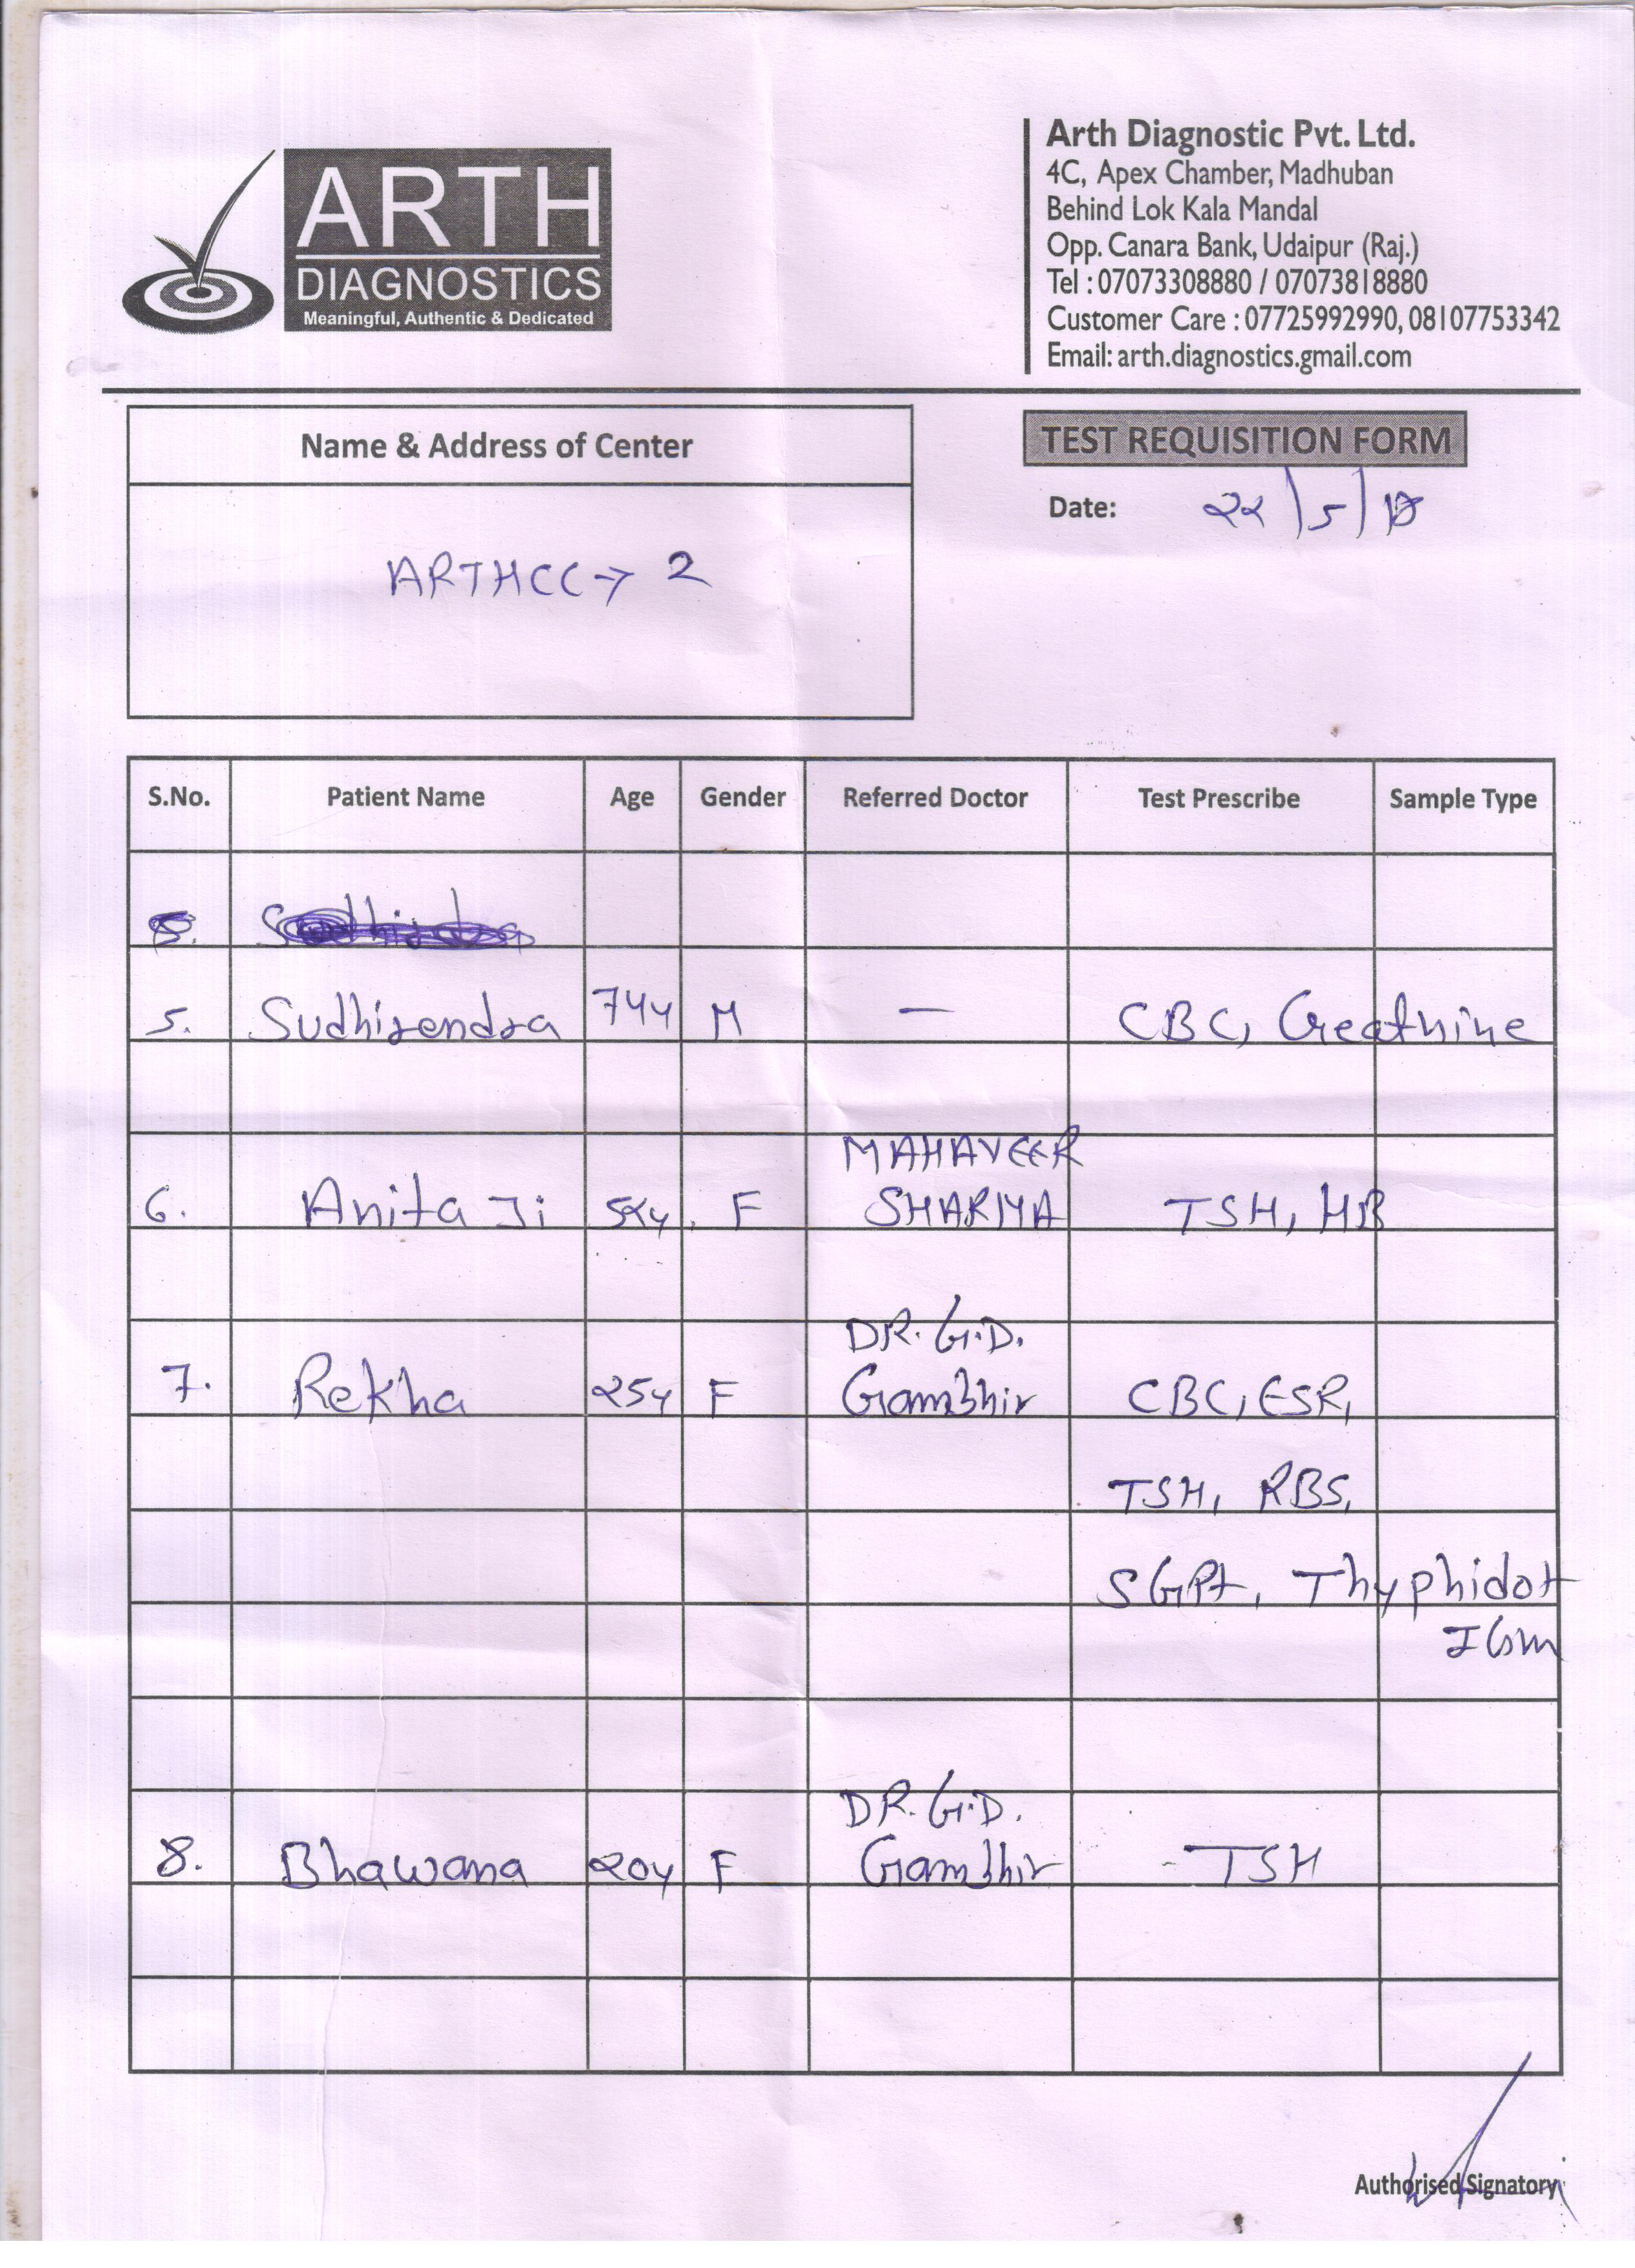 ARTH
DIAGNOSTICS
Meaningful, Authentic & Dedicated
Arth Diagnostic Pvt. Ltd.
4C, Apex Chamber, Madhuban
Behind Lok Kala Mandal
Opp. Canara Bank, Udaipur (Raj.)
Tel : 07073308880 / 07073818880
Customer Care : 07725992990, 08107753342
Email: arth.diagnostics.gmail.com
Name & Address of Center
TEST REQUISITION FORM
Date: 22/5/
ARTHCC→ 2
S.No. Patient Name Age Gender Referred Doctor Test Prescribe Sample Type
5.
5. Sudhirendra 74y M — CBC, Creatnine
MAHAVEER
6. Anita Ji F SHARMA TSH, HB
DR. G.D.
7. Rekha 25y F Gambhir CBC, ESR,
TSH, RBS,
SGPt, Thyphidot
IGm
DR. G.D.
8. Bhawana 20y F Gambhir - TSH
Authorised Signatory